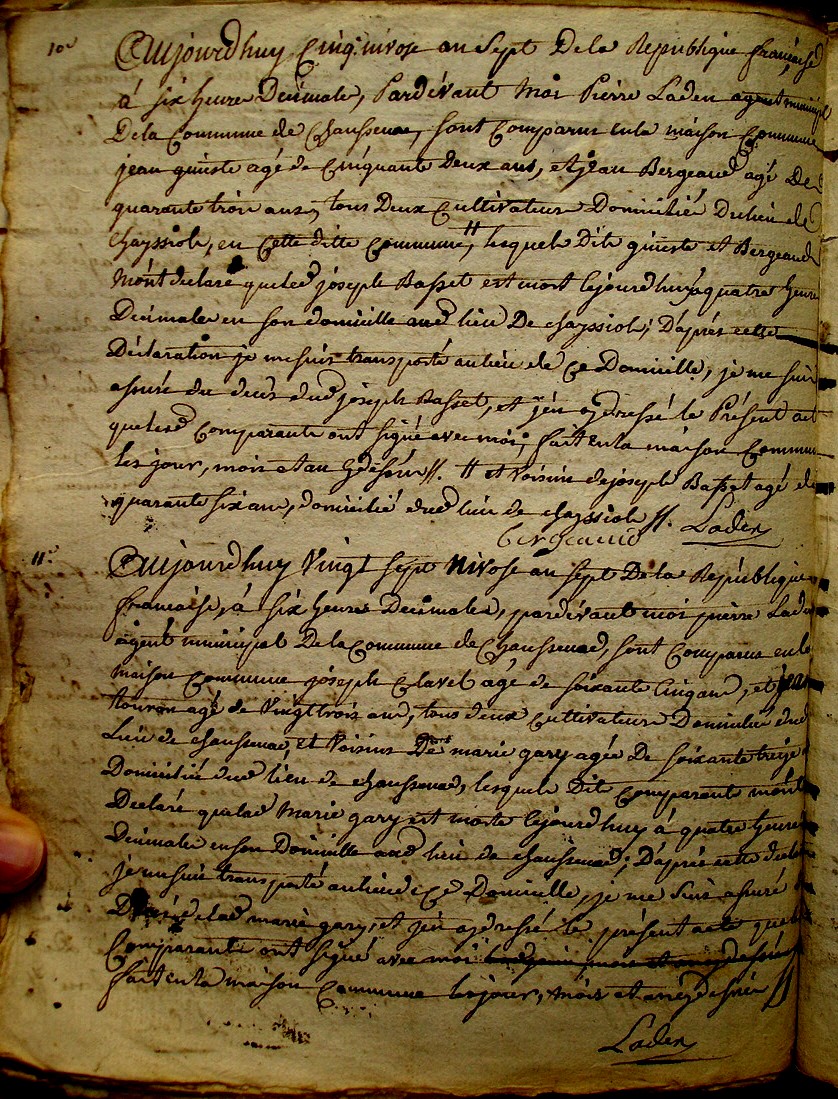 10e Aujourdhuy Cinq nivose an Sept De la Republique française
à six heure Decimale, Pardevant Moi Pierre Laden agent municipal
De la Commune de Chaussenac, sont Comparus en la maison Commune
jean giniste agé de Cinquante deux ans, et jean Bergeaud agé De
quarante trois ans, tous Deux Cultivateurs Domicilié Du lieu de
Chayssiols, en Cette ditte Commune, # lesquels Dits giniste et Bergeaud
M'ont declaré que led joseph Basset est mort Cejourdhuy à quatre heure
Decimale en son domicille aud lieu De chayssiols; D'après cette
Déclaration je me suis transporté au lieu de Ce Domicille, je me suis
assuré du decès dud joseph Basset, et j'en ay dressé le Présent acte
que lesd Comparants ont signé avec moi; fait en la maison Commune
les jour, mois et an #. # et Voisins de joseph Basset agé de
quarante six ans, domicilié dud lieu de chayssiols #. Laden
bergeaud
11e Aujourdhuy Vingt Sept nivose an sept De la République
francaise, à six heures Decimales, pardevant moi pierre Laden
agent municipal De la Commune de Chaussenac, sont Comparus en la
maison Commune joseph Clavel agé de soixante Cinq ans, et jean
touron agé de Vingt trois ans, tous deux Cultivateurs Domicilié dud
Lieu de chaussenac, et Voisins De marie gary agée De soixante treize
Domiciliée dud lieu de chaussenac, lesquels Dit Comparants m'ont
Declaré que lad Marie gary est morte Cejourdhuy à quatre heures
Decimales en son Domicille aud lieu de chaussenac; D'après cette
je me suis transporté au lieu de Ce Domicille, je me suis assuré
Decès de lad marie gary, et j'en ay dressé le présent acte que
Comparants ont signé avec moi
fait en la maison Commune les jour, mois et an
Laden